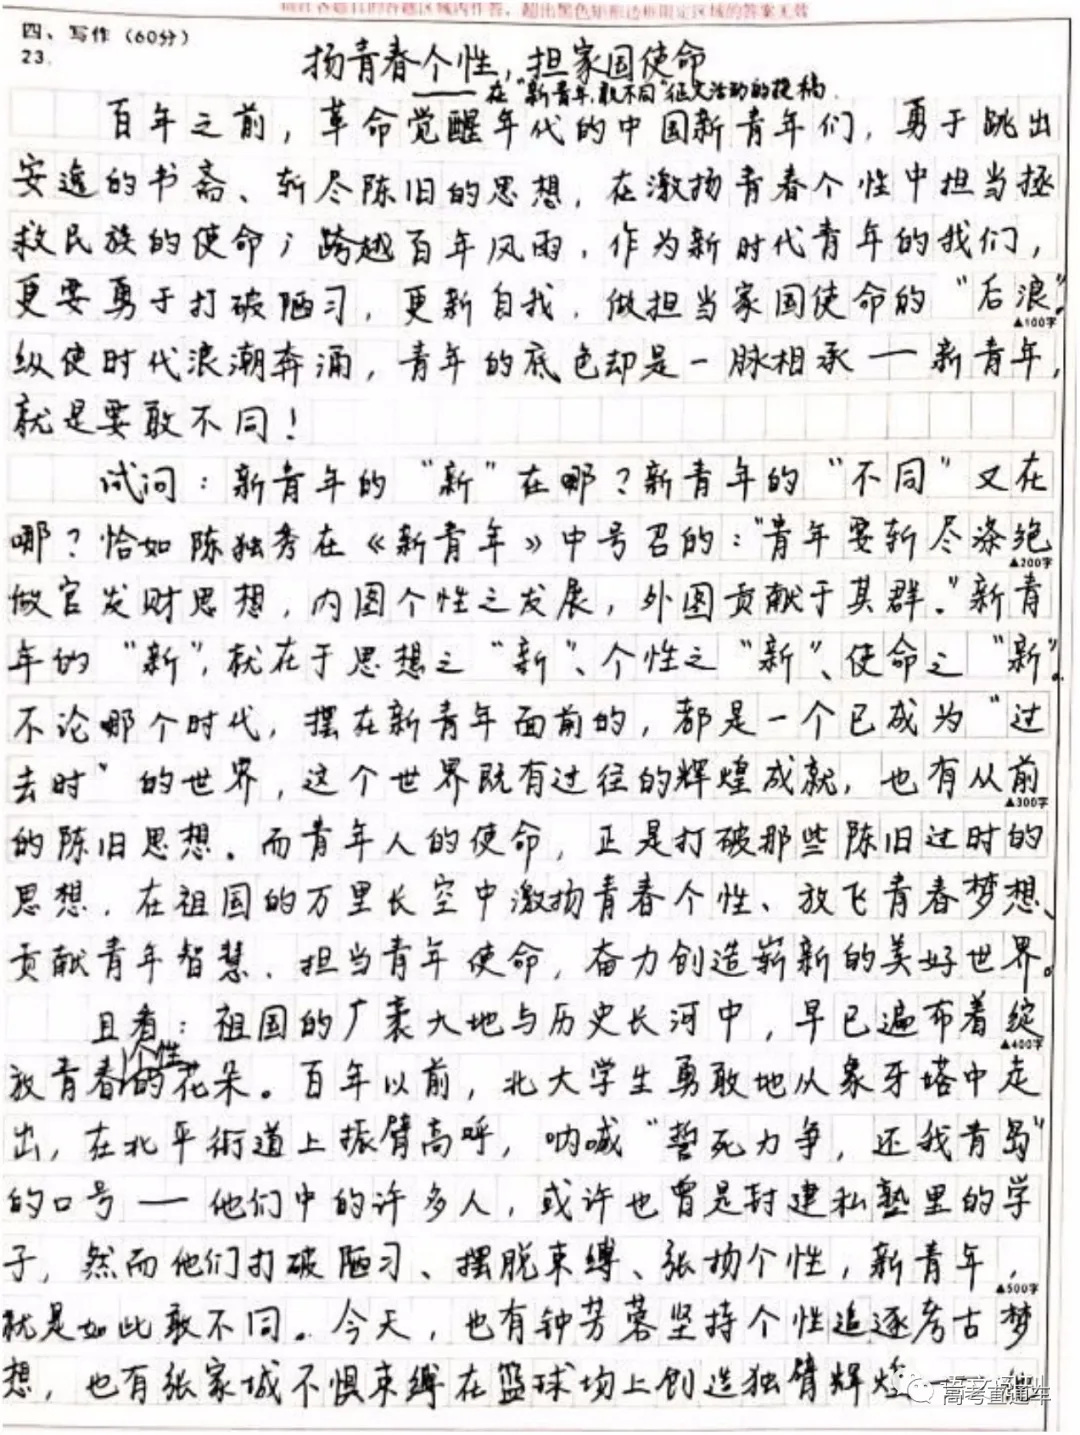 请在各题目的答题区域内作答，超出黑色矩形边框限定区域的答案无效
四、写作（60分）
23.
扬青春个性，担家国使命
——在“新青年，敢不同”征文活动的投稿
百年之前，革命觉醒年代的中国新青年们，勇于跳出
安逸的书斋、斩尽陈旧的思想，在激扬青春个性中担当拯
救民族的使命；跨越百年风雨，作为新时代青年的我们，
更要勇于打破陋习，更新自我，做担当家国使命的“后浪”。
▲100字
纵使时代浪潮奔涌，青年的底色却是一脉相承——新青年，
就是要敢不同！
试问：新青年的“新”在哪？新青年的“不同”又在
哪？恰如陈独秀在《新青年》中号召的：“青年要斩尽涤绝
▲200字
做官发财思想，内图个性之发展，外图贡献于其群。”新青
年的“新”，就在于思想之“新”、个性之“新”、使命之“新”。
不论哪个时代，摆在新青年面前的，都是一个已成为“过
去时”的世界，这个世界既有过往的辉煌成就，也有从前
▲300字
的陈旧思想。而青年人的使命，正是打破那些陈旧过时的
思想，在祖国的万里长空中激扬青春个性、放飞青春梦想、
贡献青年智慧、担当青年使命，奋力创造崭新的美好世界。
且看：祖国的广袤大地与历史长河中，早已遍布着绽
▲400字
放青春个性的花朵。百年以前，北大学生勇敢地从象牙塔中走
出，在北平街道上振臂高呼，呐喊“誓死力争，还我青岛”
的口号——他们中的许多人，或许也曾是封建私塾里的学
子，然而他们打破陋习、摆脱束缚、张扬个性，新青年，
▲500字
就是如此敢不同。今天，也有钟芳蓉坚持个性追逐考古梦
想，也有张家城不惧束缚在篮球场上创造独臂辉煌——
高考直通车